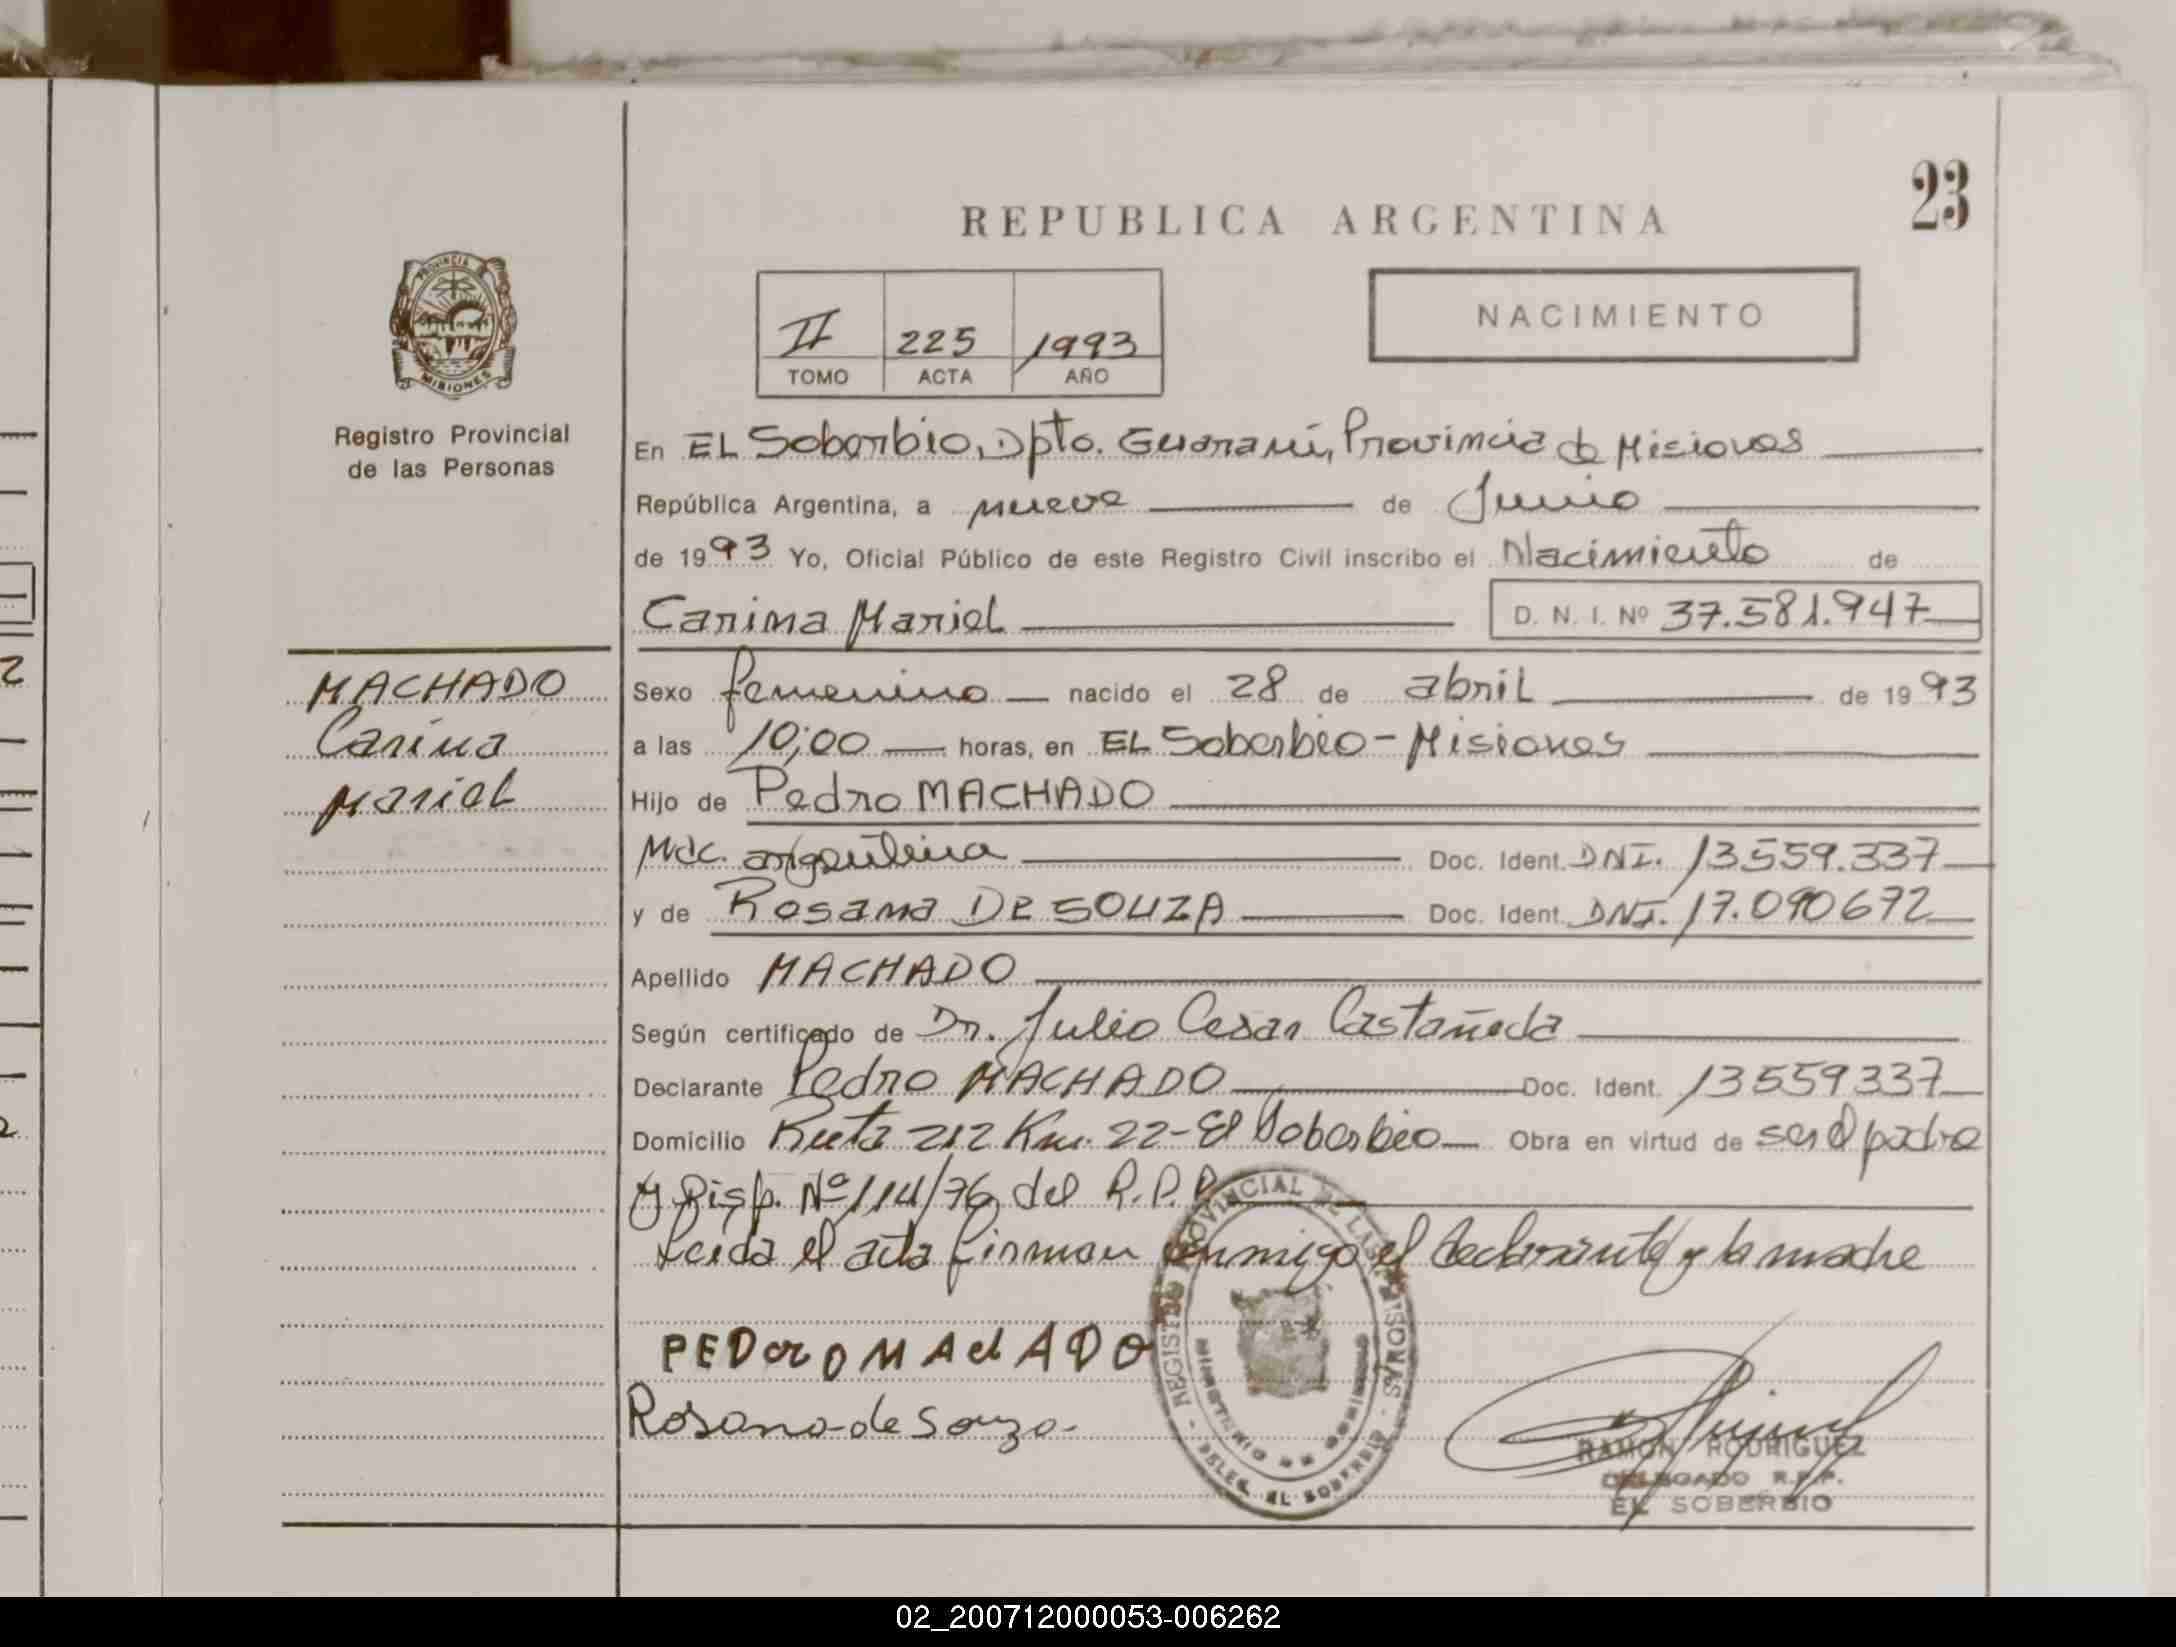 23
REPUBLICA ARGENTINA
PROVINCIA DE
MISIONES
Registro Provincial
de las Personas
II 225 1993
TOMO ACTA AÑO
NACIMIENTO
En EL Soberbio, Dpto. Guaraní, Provincia de Misiones
República Argentina, a nueve de Junio
de 1993 Yo, Oficial Público de este Registro Civil inscribo el Nacimiento de
Carina Mariel D. N. I. Nº 37.581.947
MACHADO
Carina
Mariel
Sexo femenino nacido el 28 de abril de 1993
a las 10;00 horas, en EL Soberbio - Misiones
Hijo de Pedro MACHADO
Nac. argentina Doc. Ident. DNI. 13559.337
y de Rosana DE SOUZA Doc. Ident. DNI. 17.090672
Apellido MACHADO
Según certificado de Dr. Julio Cesar Castañeda
Declarante Pedro MACHADO Doc. Ident. 13559337
Domicilio Ruta 212 Km. 22 - El Soberbio Obra en virtud de ser el padre
y Disp. Nº 114/76 del R.P.P.
Leida el acta firman conmigo el declarante y la madre
PEDroO MAcHADO
Rosana de Souza.
- REGISTRO PROVINCIAL DE LAS PERSONAS -
MINISTERIO DE GOBIERNO
DELEG. EL SOBERBIO
RAMON RODRIGUEZ
DELEGADO R.P.P.
EL SOBERBIO
02_200712000053-006262